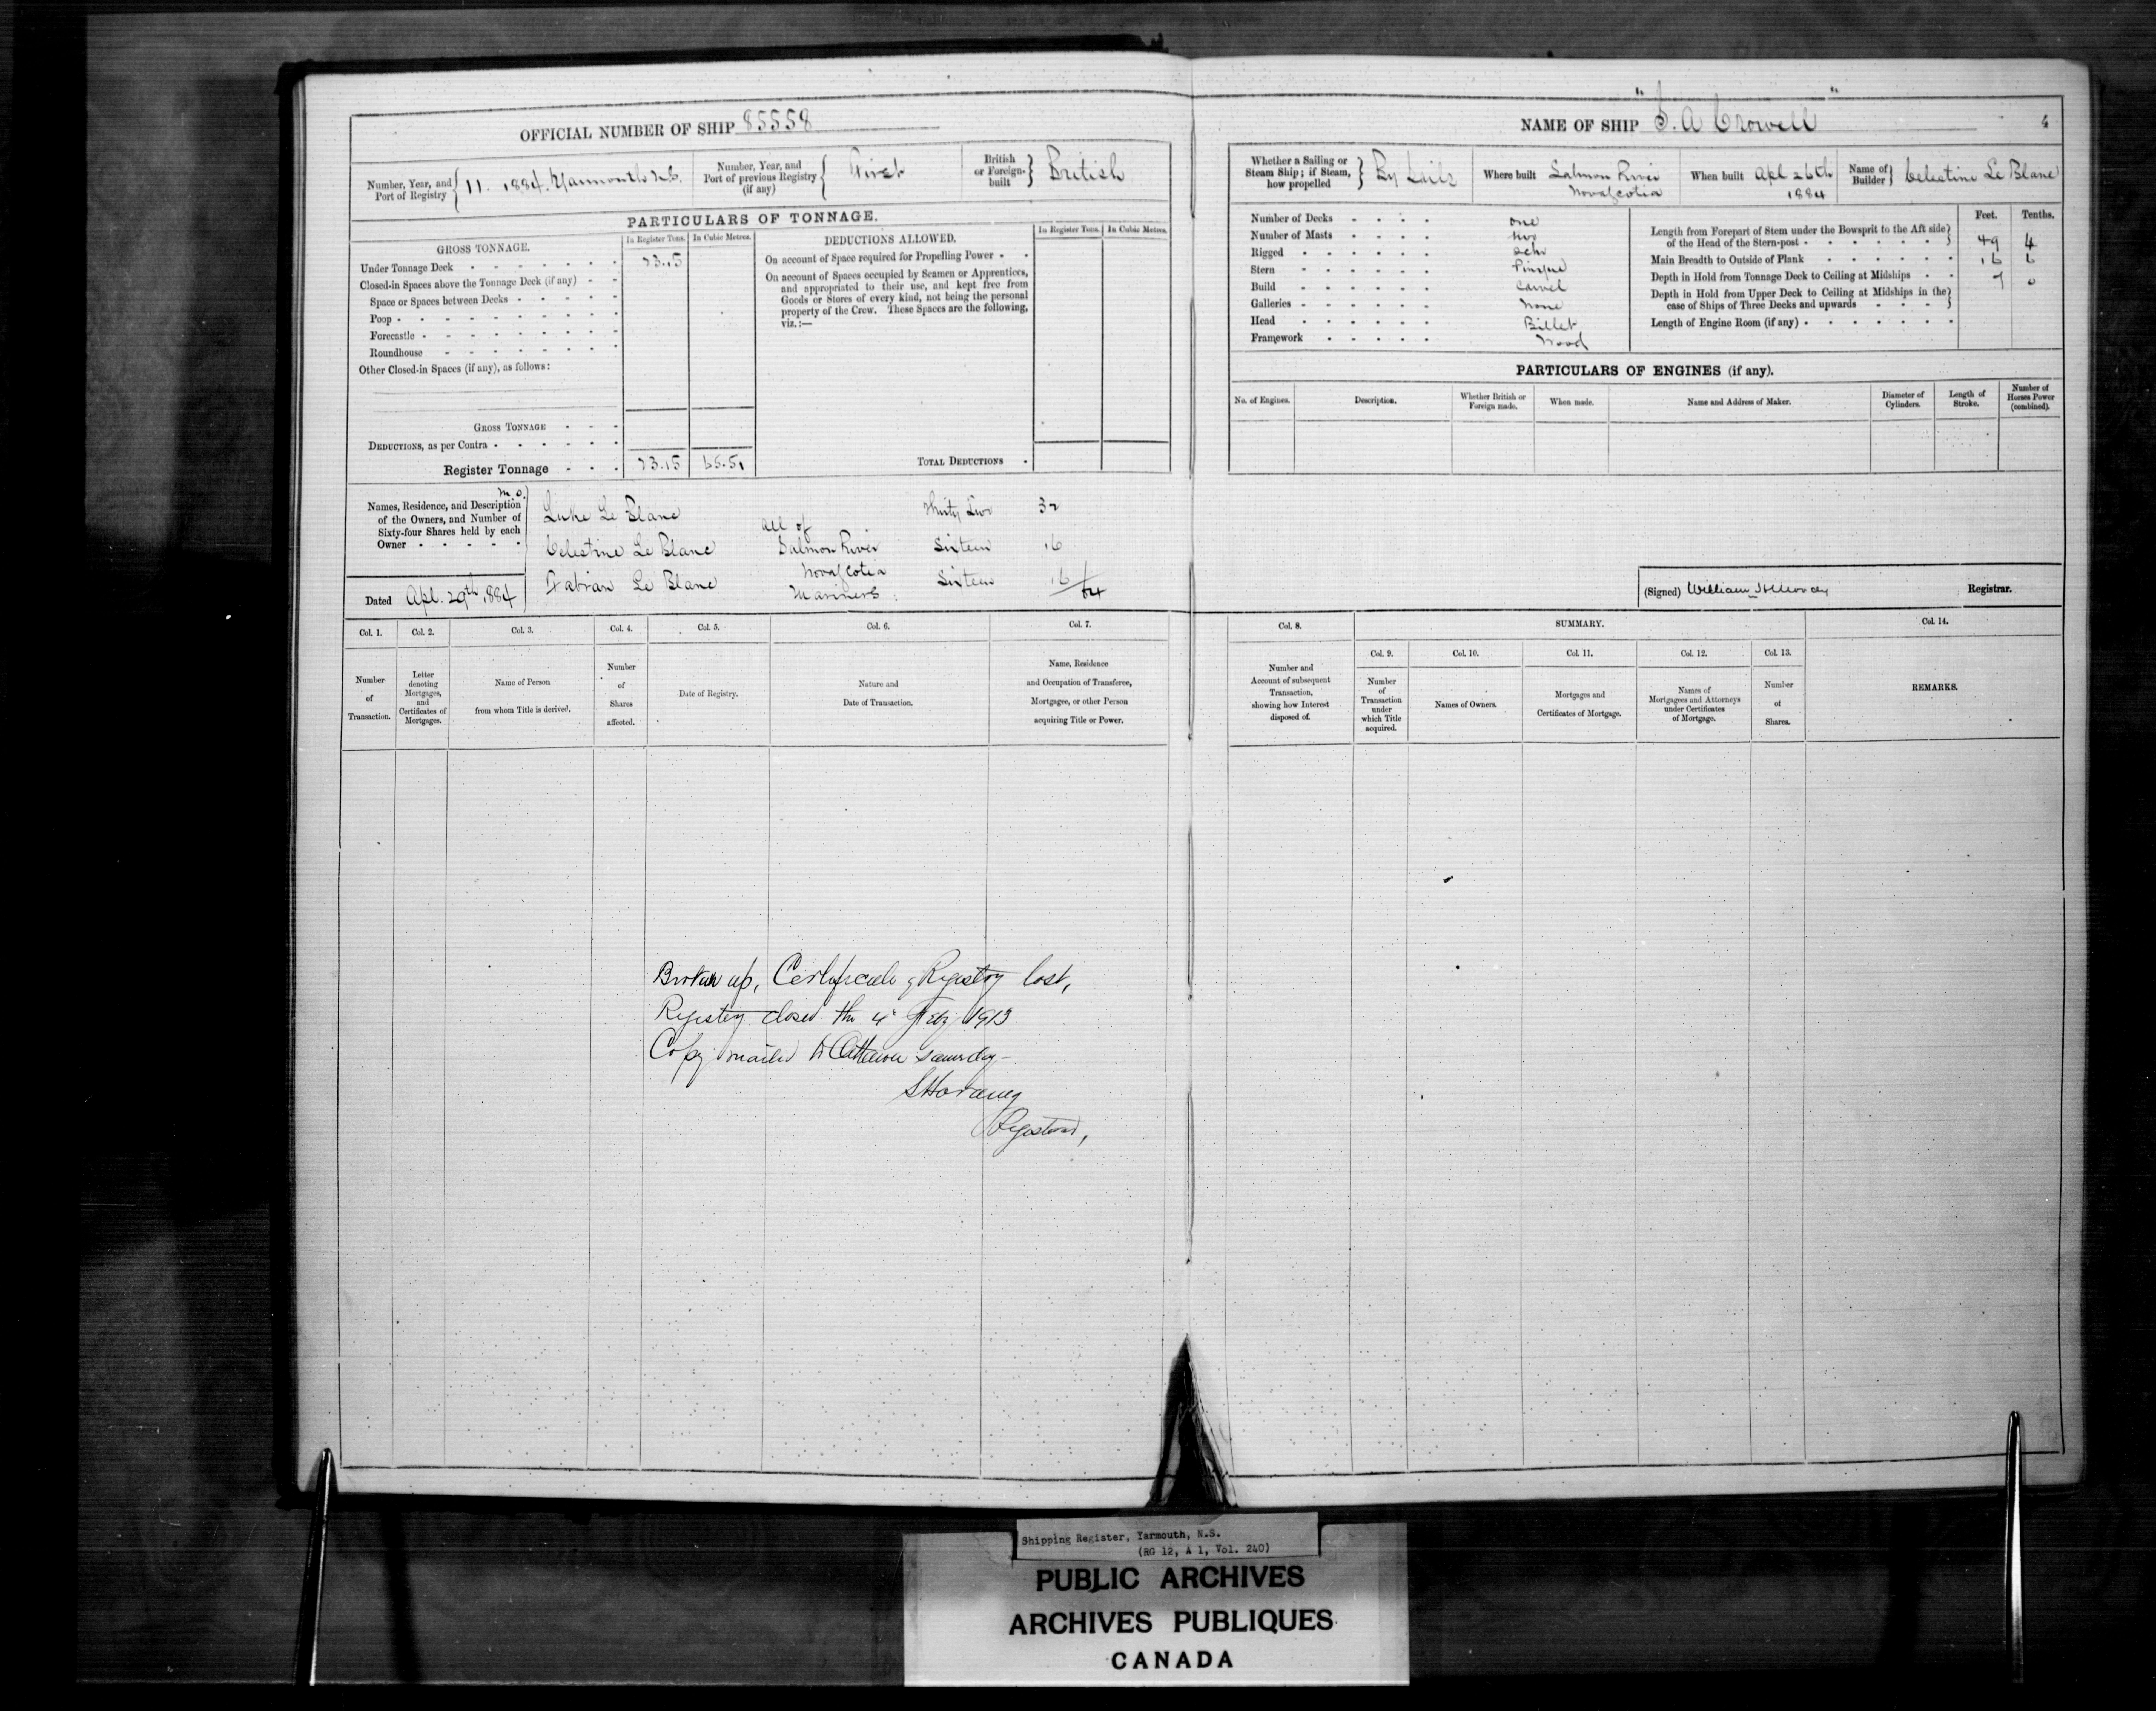 OFFICIAL NUMBER OF SHIP 85558
Number, Year, and Port of Registry 11. 1884. Yarmouth N.S.
Number, Year, and Port of previous Registry (if any) First
British or Foreign-built British
PARTICULARS OF TONNAGE.
GROSS TONNAGE.
In Register Tons.
In Cubic Metres.
Under Tonnage Deck 23.15
Closed-in Spaces above the Tonnage Deck (if any)
Space or Spaces between Decks
Poop
Forecastle
Roundhouse
Other Closed-in Spaces (if any), as follows:
GROSS TONNAGE
DEDUCTIONS, as per Contra
Register Tonnage 23.15 65.51
DEDUCTIONS ALLOWED.
In Register Tons.
In Cubic Metres.
On account of Space required for Propelling Power
On account of Spaces occupied by Seamen or Apprentices,
and appropriated to their use, and kept free from
Goods or Stores of every kind, not being the personal
property of the Crew. These Spaces are the following,
viz.:—
TOTAL DEDUCTIONS
m.o.
Names, Residence, and Description
of the Owners, and Number of
Sixty-four Shares held by each
Owner
Luke Le Blanc Thirty Two 32
all of
Celestine Le Blanc Salmon River Sixteen 16
Nova Scotia
Fabian Le Blanc Mariners Sixteen 16/64
Dated Apl. 29th 1884
Col. 1.
Number
of
Transaction.
Col. 2.
Letter
denoting
Mortgages,
and
Certificates of
Mortgages.
Col. 3.
Name of Person
from whom Title is derived.
Col. 4.
Number
of
Shares
affected.
Col. 5.
Date of Registry.
Col. 6.
Nature and
Date of Transaction.
Col. 7.
Name, Residence
and Occupation of Transferee,
Mortgagee, or other Person
acquiring Title or Power.
Broken up, Certificate of Registry lost,
Registry closed the 4th Feby 1913
Copy mailed to Ottawa same day -
Registrar,
"S. A Crowell"
NAME OF SHIP
Whether a Sailing or
Steam Ship; if Steam,
how propelled By Sails
Where built Salmon River
Nova Scotia
When built Apl 26th
1884
Name of
Builder Celestine Le Blanc
Number of Decks one
Number of Masts two
Rigged Schr
Stern Pinque
Build Carvel
Galleries None
Head Billet
Framework Wood
Feet. Tenths.
Length from Forepart of Stem under the Bowsprit to the Aft side
of the Head of the Stern-post 49 4
Main Breadth to Outside of Plank 16 6
Depth in Hold from Tonnage Deck to Ceiling at Midships 7 0
Depth in Hold from Upper Deck to Ceiling at Midships in the
case of Ships of Three Decks and upwards
Length of Engine Room (if any)
PARTICULARS OF ENGINES (if any).
No. of Engines.
Description.
Whether British or
Foreign made.
When made.
Name and Address of Maker.
Diameter of
Cylinders.
Length of
Stroke.
Number of
Horses Power
(combined).
(Signed) William H Moody Registrar.
Col. 8.
Number and
Account of subsequent
Transaction,
showing how Interest
disposed of.
SUMMARY.
Col. 9.
Number
of
Transaction
under
which Title
acquired.
Col. 10.
Names of Owners.
Col. 11.
Mortgages and
Certificates of Mortgage.
Col. 12.
Names of
Mortgagees and Attorneys
under Certificates
of Mortgage.
Col. 13.
Number
of
Shares.
Col. 14.
REMARKS.
Shipping Register, Yarmouth, N.S.
(RG 12, A 1, Vol. 240)
PUBLIC ARCHIVES
ARCHIVES PUBLIQUES
CANADA